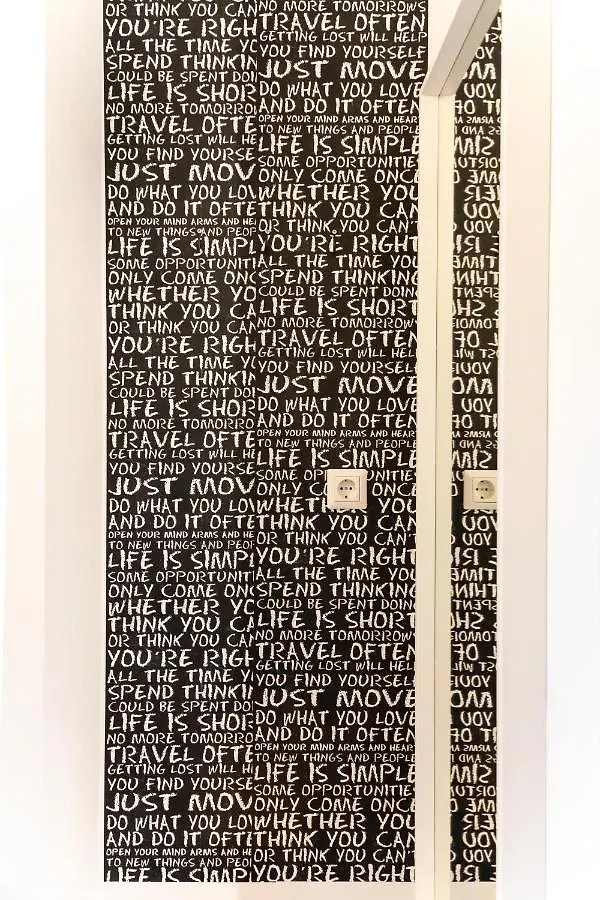 OR THINK YOU CA
YOU'RE RIGH
ALL THE TIME Y
SPEND THINKIN
COULD BE SPENT DOI
LIFE IS SHOR
NO MORE TOMORRO
TRAVEL OFTE
GETTING LOST WILL HE
YOU FIND YOURSE
JUST MOV
DO WHAT YOU LOV
AND DO IT OFTE
OPEN YOUR MIND ARMS AND HE
TO NEW THINGS AND PEOP
LIFE IS SIMPL
SOME OPPORTUNITI
ONLY COME ONC
WHETHER YO
THINK YOU CA
OR THINK YOU CA
YOU'RE RIGH
ALL THE TIME Y
SPEND THINKIN
COULD BE SPENT DOI
LIFE IS SHOR
NO MORE TOMORRO
TRAVEL OFTE
GETTING LOST WILL HE
YOU FIND YOURSE
JUST MOV
DO WHAT YOU LOV
AND DO IT OFTE
OPEN YOUR MIND ARMS AND HE
TO NEW THINGS AND PEOP
LIFE IS SIMPL
SOME OPPORTUNITI
ONLY COME ONC
WHETHER YO
THINK YOU CA
OR THINK YOU CA
YOU'RE RIGH
ALL THE TIME Y
SPEND THINKIN
COULD BE SPENT DOI
LIFE IS SHOR
NO MORE TOMORRO
TRAVEL OFTE
GETTING LOST WILL HE
YOU FIND YOURSE
JUST MOV
DO WHAT YOU LOV
AND DO IT OFTE
OPEN YOUR MIND ARMS AND HE
TO NEW THINGS AND PEOP
LIFE IS SIMPL
NO MORE TOMORROWS
TRAVEL OFTEN
GETTING LOST WILL HELP
YOU FIND YOURSELF
JUST MOVE
DO WHAT YOU LOVE
AND DO IT OFTEN
OPEN YOUR MIND ARMS AND HEART
TO NEW THINGS AND PEOPLE
LIFE IS SIMPLE
SOME OPPORTUNITIE
ONLY COME ONCE
WHETHER YOU
THINK YOU CAN
OR THINK YOU CAN
YOU'RE RIGHT
ALL THE TIME YOU
SPEND THINKING
COULD BE SPENT DOING
LIFE IS SHORT
NO MORE TOMORROWS
TRAVEL OFTEN
GETTING LOST WILL HELP
YOU FIND YOURSELF
JUST MOVE
DO WHAT YOU LOVE
AND DO IT OFTEN
OPEN YOUR MIND ARMS AND HEART
TO NEW THINGS AND PEOPLE
LIFE IS SIMPLE
SOME OPP
ONLY ONCE
WHETHER YOU
THINK YOU CAN
OR THINK YOU CAN
YOU'RE RIGHT
ALL THE TIME YOU
SPEND THINKING
COULD BE SPENT DOING
LIFE IS SHORT
NO MORE TOMORROWS
TRAVEL OFTEN
GETTING LOST WILL HELP
YOU FIND YOURSELF
JUST MOVE
DO WHAT YOU LOVE
AND DO IT OFTEN
OPEN YOUR MIND ARMS AND HEART
TO NEW THINGS AND PEOPLE
LIFE IS SIMPLE
SOME OPPORTUNITIE
ONLY COME ONCE
WHETHER YOU
THINK YOU CAN
OR THINK YOU CAN
YOU'RE RIGHT